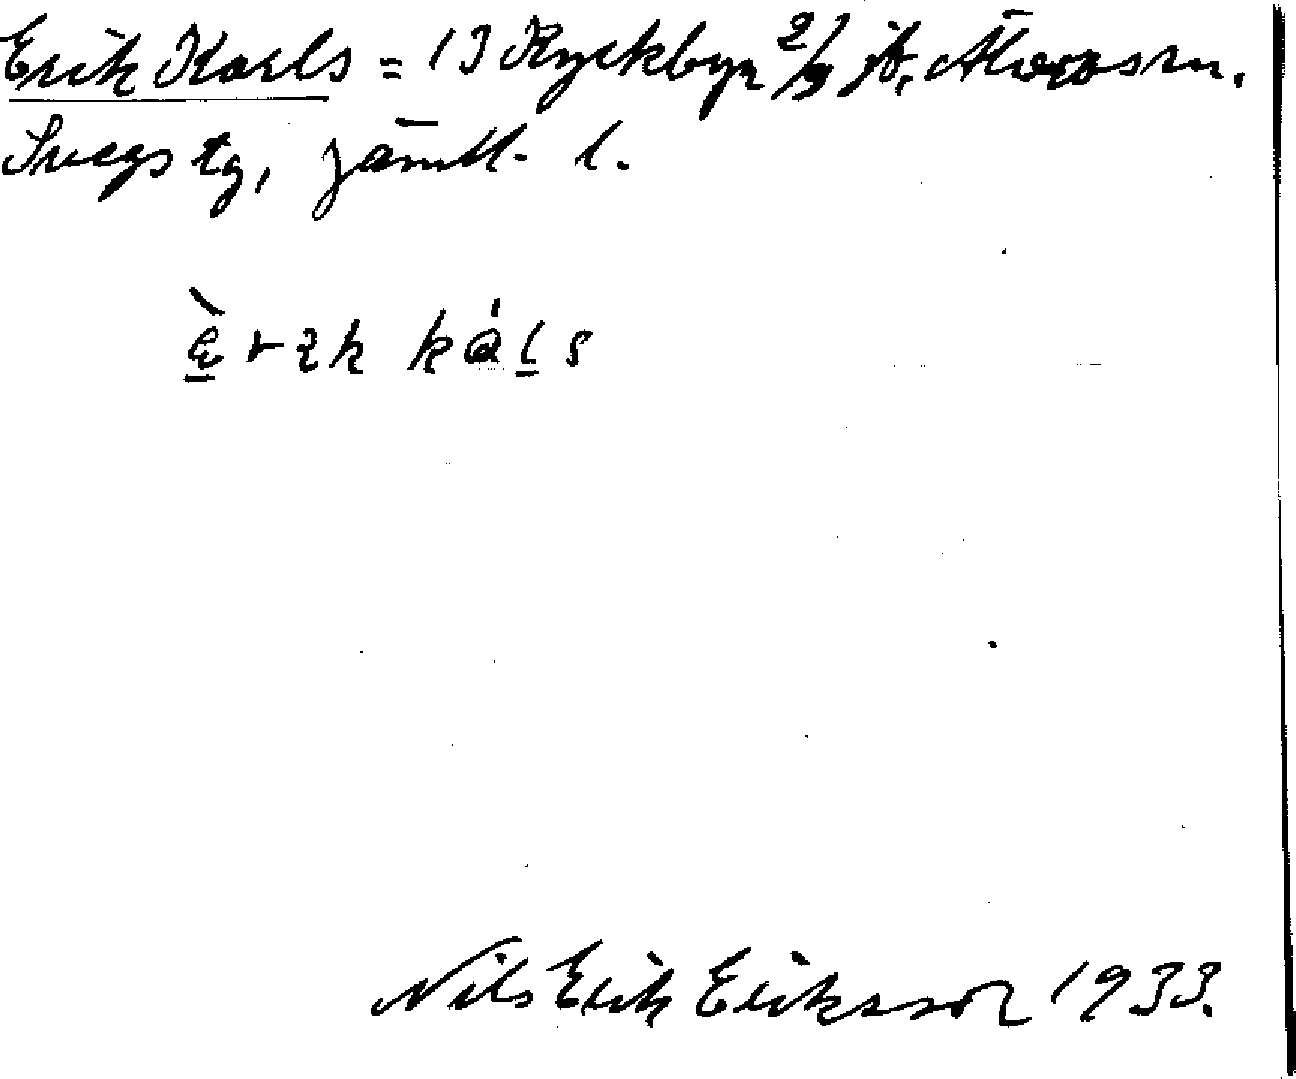 Erik Karls = 13 Ryckbyn 2/9 Ä, Älvros sn.
Svegs tg, Jämtl. l.
èrık káls
Nils Erik Eriksson 1933.